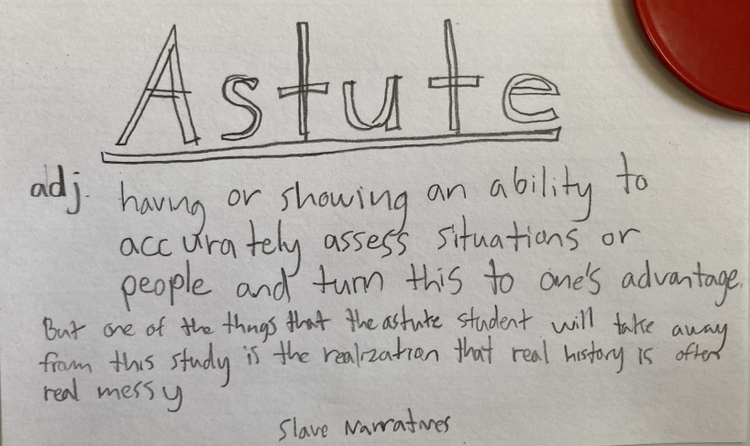 Astute
adj. having or showing an ability to
accurately assess situations or
people and turn this to one's advantage.
But one of the things that the astute student will take away
from this study is the realization that real history is often
real messy
Slave Narratives